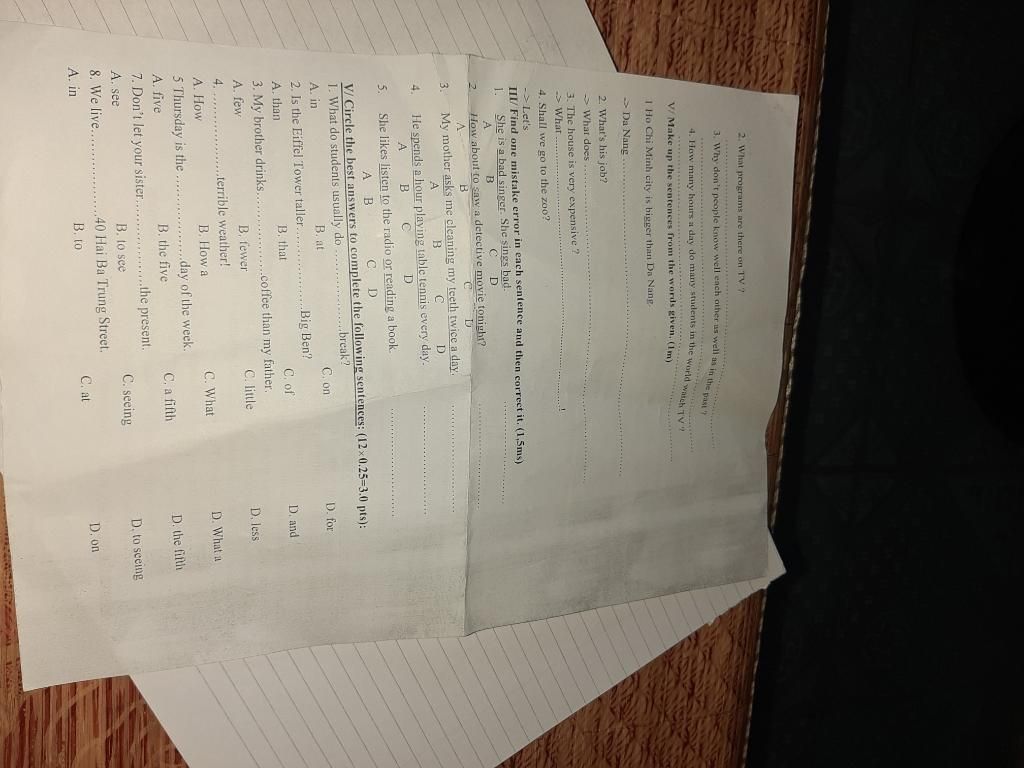 2. What programs are there on TV ?
3. Why don't people know well each other as well as in the past ?
4. How many hours a day do many students in the world watch TV ?
V/ Make up the sentences from the words given. (1m)
1 Ho Chi Minh city is bigger than Da Nang.
-> Da Nang ........................................
2. What's his job?
-> What does ........................................
3. The house is very expensive ?
-> What ........................................!
4. Shall we go to the zoo?
-> Let's
III/ Find one mistake error in each sentence and then correct it. (1,5ms)
1. She is a bad singer. She sings bad. ....................
A B C D
2. How about to saw a detective movie tonight? ....................
A B C D
3. My mother asks me cleaning my teeth twice a day. ....................
A B C D
4. He spends a hour playing table tennis every day. ....................
A B C D
5. She likes listen to the radio or reading a book. ....................
A B C D
V/ Circle the best answers to complete the following sentences: (12×0.25=3.0 pts):
1. What do students usually do ....................break?
A. in B. at C. on D. for
2. Is the Eiffel Tower taller....................Big Ben?
A. than B. that C. of D. and
3. My brother drinks....................coffee than my father.
A. few B. fewer C. little D. less
4....................terrible weather!
A. How B. How a C. What D. What a
5 Thursday is the ....................day of the week.
A. five B. the five C. a fifth D. the fifth
7. Don't let your sister....................the present.
A. see B. to see C. seeing D. to seeing
8. We live....................40 Hai Ba Trung Street.
A. in B. to C. at D. on